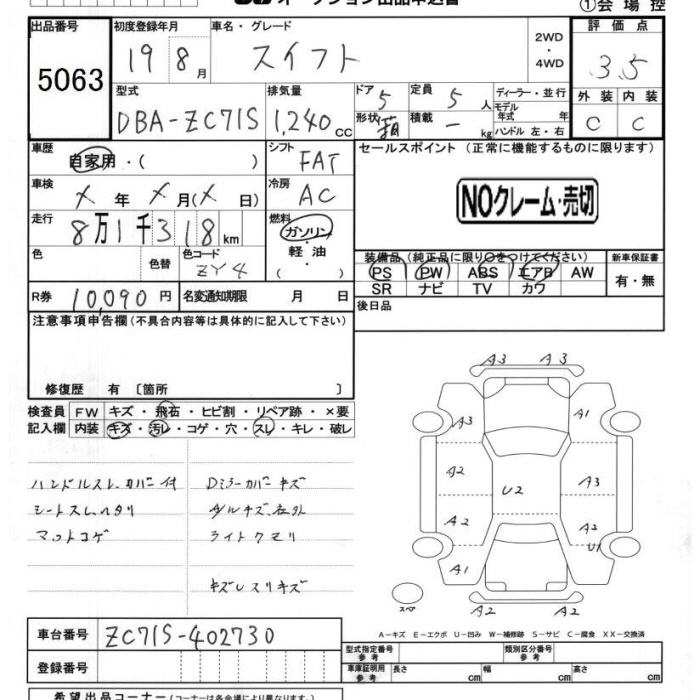 オークション出品申込書
①会場控
出品番号
5063
初度登録年月
19 8月
車名・グレード
スイフト
2WD
・
4WD
評価点
3.5
型式
DBA-ZC71S
排気量
1,240 cc
ドア 5
形状 箱
定員 5 人
積載 — kg
ディーラー・並行
モデル年式 年
ハンドル 左・右
外装 内装
C C
車歴
自家用・( )
シフト
FAT
セールスポイント (正常に機能するものに限ります)
車検
X 年 X 月(X 日)
冷房
AC
NOクレーム・売切
走行
8万1千318km
燃料
ガソリン・
軽油・
( )
色
色替
色コード
ZY4
装備品(純正品に限り○をつけてください)
新車保証書
PS PW ABS エアB AW
有・無
SR ナビ TV カワ
R券 10,090円
名変通知期限 月 日
後日品
注意事項申告欄(不具合内容等は具体的に記入して下さい)
修復歴 有 〔箇所 〕
検査員 FW キズ・飛石・ヒビ割・リペア跡・×要
記入欄 内装 キズ・汚レ・コゲ・穴・スレ・キレ・破レ
ハンドルスレ、カバー付
シートスレ、ヘタリ
マットコゲ
Dミラーカバーキズ
ライトクモリ
A3 A3
A3 A1
A2 A3
U2
A2 A2
U1
A1
A2 A2
スペア
A-キズ E-エクボ U-凹み W-補修跡 S-サビ C-腐食 XX-交換済
車台番号 ZC71S-402730
登録番号
型式指定番号
参考
類別区分番号
参考
車庫証明用
参考
長さ cm 幅 cm 高さ cm
希望出品コーナー(コーナーは各会場により異なります)